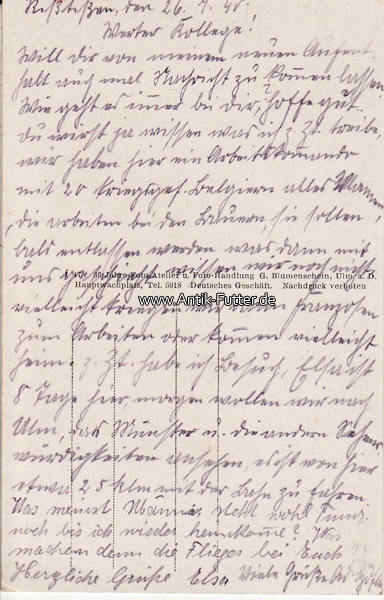 Rißtißen, den 26. 7. 40.
Werter Kollege!
Will dir von meinem neuen Aufent-
halt auch mal Nachricht zu kommen lassen
Wie geht es immer bei dir, hoffe gut.
Du wirst ja wissen was ich z. Zt. treibe,
wir haben hier ein Arbeitskommando
mit 20 kriegsgef. Belgiern alles Wallonen,
die arbeiten bei den Bauern, sie sollen
bald entlassen werden was dann mit
uns wissen wir noch nicht
39 Jahre Foto-Atelier u. Foto-Handlung G. Blumenschein, Ulm a. D.
Hauptwachplatz, Tel. 3918 Deutsches Geschäft. Nachdruck verboten
www.Antik-Futter.de
vielleicht kriegen wir dann Franzosen
zum Arbeiten oder kommen vielleicht
heim. z. Zt. habe ich Besuch, Elsa ist
8 Tage hier morgen wollen wir nach
Ulm, das Münster u. die andern Sehens-
würdigkeiten ansehen, es ist von hier
etwa 25 klm mit der Bahn zu fahren
Was meinst Männe, steht wohl
noch bis ich wieder heimkomme? Was
machen denn die Flieger bei Euch?
Herzliche Grüße Elsa Viele Grüße